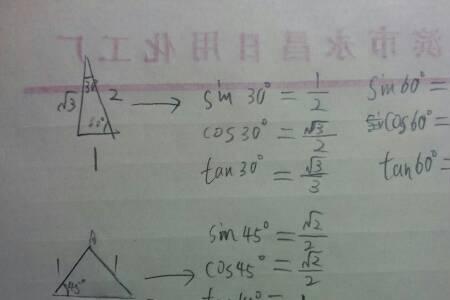 滨市永昌日用化工厂
30°
√3 2
60°
1
sin 30° = 1/2
cos 30° = √3/2
tan 30° = √3/3
sin 60° =
cos 60° =
tan 60° =
1 1
45°
sin 45° = √2/2
cos 45° = √2/2